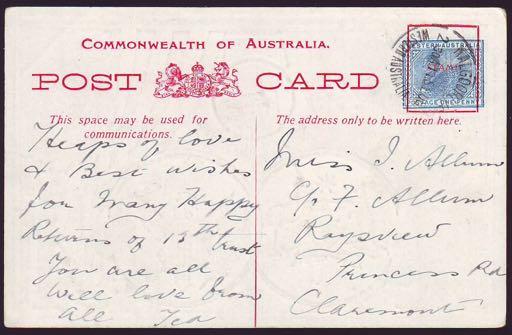 COMMONWEALTH OF AUSTRALIA.
POST CARD
This space may be used for
communications.
The address only to be written here.
Heaps of love
& Best wishes
for Many Happy
Returns of 13th trust
You are all
well love from
all Ted
Miss I. Allum
c/o F. Allum
Raysview
Princess Rd
Claremont